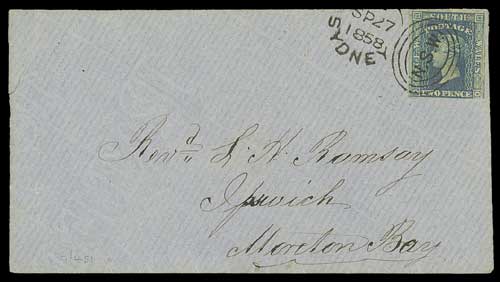 SP 27
1858
SYDNEY
N.S.W
SOUTH
POSTAGE
WALES
TWO PENCE
Revd. L. H. Ramsay
Ipswich
Moreton Bay